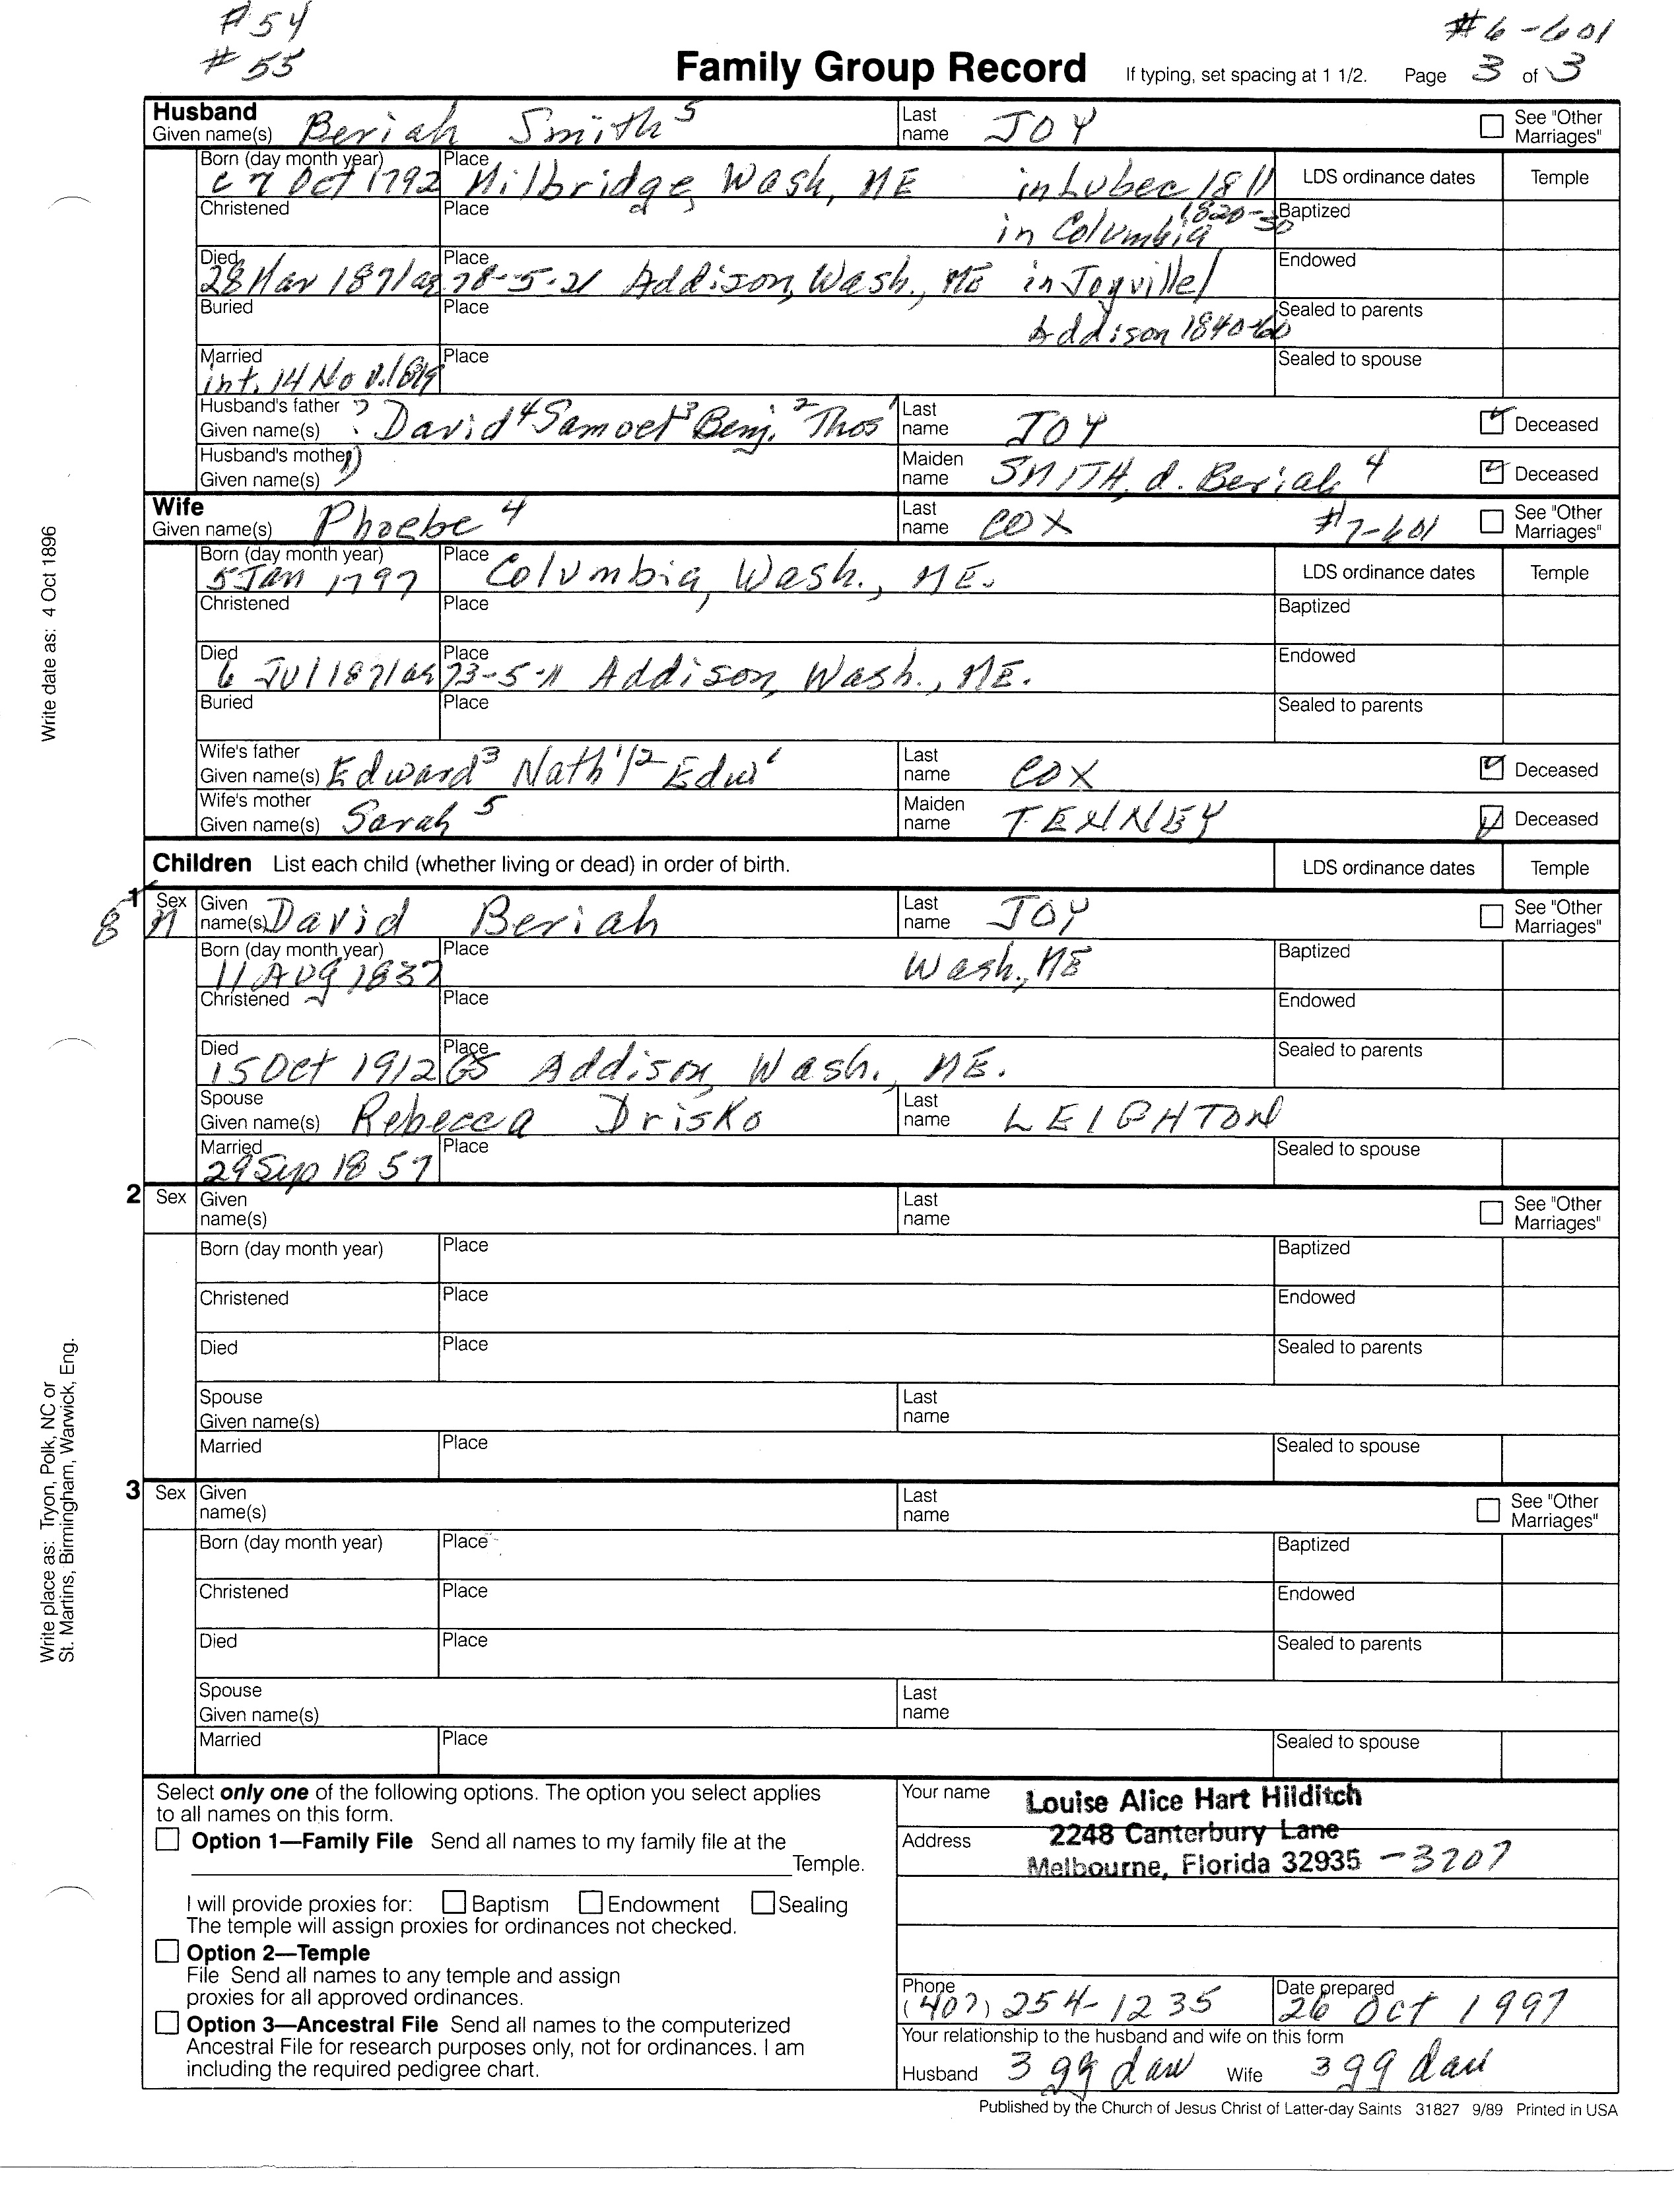 #54
#55
#6-601
Family Group Record If typing, set spacing at 1 1/2. Page 3 of 3
Husband
Given name(s) Beriah Smith 5 Last name JOY See "Other Marriages"
Born (day month year) c 7 Oct 1792 Place Milbridge, Wash, ME in Lubec 1811 LDS ordinance dates Temple
Christened Place in Columbia 1820-30 Baptized
Died 28 Mar 1871 ag 78-5-21 Place Addison, Wash., ME in Joyville/ Endowed
Buried Place Addison 1840-60 Sealed to parents
Married int. 14 Nov. 1819 Place Sealed to spouse
Husband's father Given name(s) ? David 4 Samuel 3 Benj. 2 Thos 1 Last name JOY Deceased
Husband's mother Given name(s) Maiden name SMITH, d. Beriah 4 Deceased
Wife
Given name(s) Phoebe 4 Last name COX #7-601 See "Other Marriages"
Born (day month year) 5 Jan 1797 Place Columbia, Wash., ME. LDS ordinance dates Temple
Christened Place Baptized
Died 6 Jul 1871 ag 73-5-11 Place Addison, Wash., ME. Endowed
Buried Place Sealed to parents
Wife's father Given name(s) Edward 3 Nath'l 2 Edw 1 Last name COX Deceased
Wife's mother Given name(s) Sarah 5 Maiden name TENNEY Deceased
Children List each child (whether living or dead) in order of birth. LDS ordinance dates Temple
1 8 Sex M Given name(s) David Beriah Last name JOY See "Other Marriages"
Born (day month year) 11 Aug 1837 Place Wash., ME Baptized
Christened Place Endowed
Died 15 Oct 1912 GS Place Addison, Wash., ME. Sealed to parents
Spouse Given name(s) Rebecca Drisko Last name LEIGHTON
Married 29 Sep 1857 Place Sealed to spouse
2 Sex Given name(s) Last name See "Other Marriages"
Born (day month year) Place Baptized
Christened Place Endowed
Died Place Sealed to parents
Spouse Given name(s) Last name
Married Place Sealed to spouse
3 Sex Given name(s) Last name See "Other Marriages"
Born (day month year) Place Baptized
Christened Place Endowed
Died Place Sealed to parents
Spouse Given name(s) Last name
Married Place Sealed to spouse
Write date as: 4 Oct 1896
Write place as: Tryon, Polk, NC or
St. Martins, Birmingham, Warwick, Eng.
Select only one of the following options. The option you select applies
to all names on this form.
Option 1—Family File Send all names to my family file at the
Temple.
I will provide proxies for: Baptism Endowment Sealing
The temple will assign proxies for ordinances not checked.
Option 2—Temple
File Send all names to any temple and assign
proxies for all approved ordinances.
Option 3—Ancestral File Send all names to the computerized
Ancestral File for research purposes only, not for ordinances. I am
including the required pedigree chart.
Your name Louise Alice Hart Hilditch
Address 2248 Canterbury Lane
Melbourne, Florida 32935 -3207
Phone (407) 254-1235 Date prepared 26 Oct 1997
Your relationship to the husband and wife on this form
Husband 3 gg dau Wife 3 gg dau
Published by the Church of Jesus Christ of Latter-day Saints 31827 9/89 Printed in USA